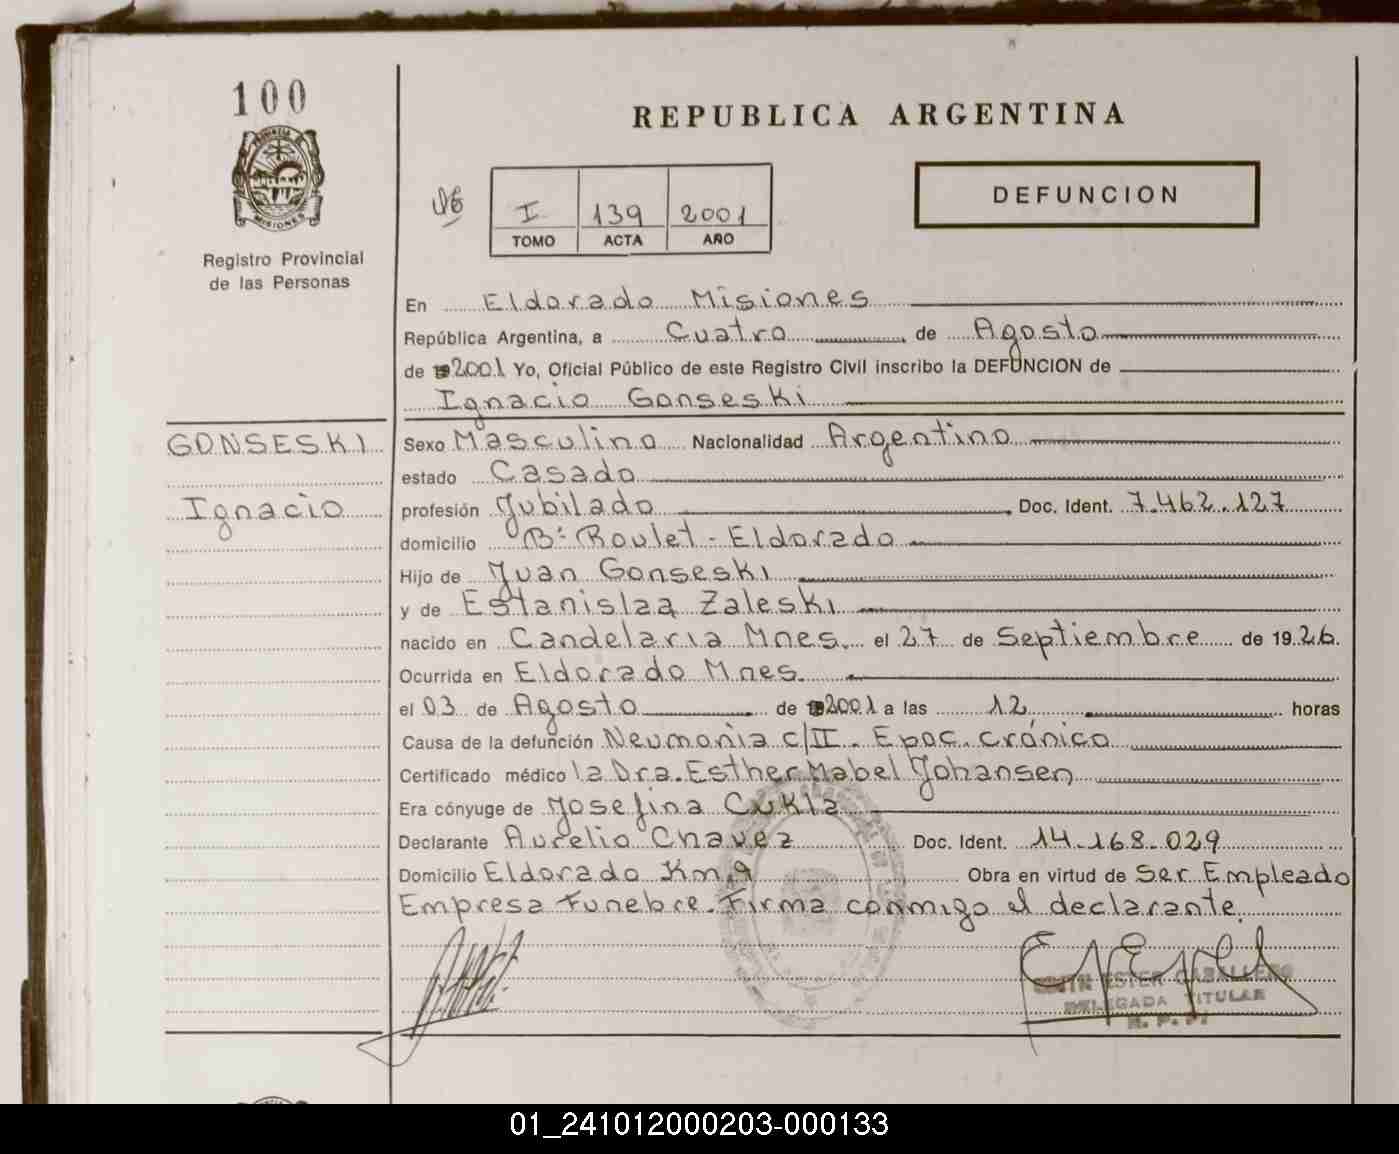 100
REPUBLICA ARGENTINA
PROVINCIA
MISIONES
Registro Provincial
de las Personas
I 139 2001
TOMO ACTA AÑO
DEFUNCION
En Eldorado Misiones
República Argentina, a Cuatro de Agosto
de 2001 Yo, Oficial Público de este Registro Civil inscribo la DEFUNCION de
Ignacio Gonseski
GONSESKI
Ignacio
Sexo Masculino Nacionalidad Argentino
estado Casado
profesión Jubilado Doc. Ident. 7.462.127
domicilio Bº Roulet - Eldorado
Hijo de Juan Gonseski
y de Estanislaa Zaleski
nacido en Candelaria Mnes. el 27 de Septiembre de 1926.
Ocurrida en Eldorado Mnes.
el 03 de Agosto de 2001 a las 12 horas
Causa de la defunción Neumonia c/II. Epoc. crónico
Certificado médico la Dra. Esther Mabel Johansen
Era cónyuge de Josefina Cukla
Declarante Aurelio Chavez Doc. Ident. 14.168.029
Domicilio Eldorado Km.9 Obra en virtud de Ser Empleado
Empresa Funebre. Firma conmigo el declarante.
EDITH ESTER CABALLERO
DELEGADA TITULAR
R. P. P.
01_241012000203-000133